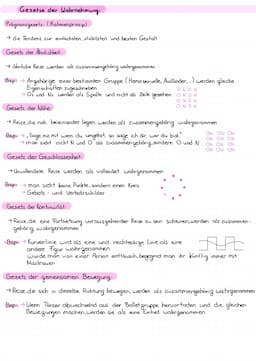 Gesetze der Wahrnehmung:
Prägnanzgesetz (Rahmenprinzip)
→ die Tendenz zur einfachsten, stabilsten und besten Gestalt
Gesetz der Ähnlichkeit
→ ähnliche Reize werden als zusammengehörig wahrgenommen
Bsp: → Angehörige einer bestimmten Gruppe (Homosexuelle, Ausländer, ..) werden gleiche
Eigenschaften zugeschrieben
→ O und N werden als Spalte und nicht als Zeile gesehen
O N O N
O N O N
O N O N
O N O N
Gesetz der Nähe
→ Reize, die nah beieinander liegen werden als zusammengehörig wahrgenommen
Bsp: → "Sage mir mit wem du umgehst, so sage ich dir, wer du bist"
→ man sieht nicht N und O als zusammengehörig, sondern O und N
ON ON ON
ON ON ON
ON ON ON
ON ON ON
Gesetz der Geschlossenheit
→ Unvollendete Reize werden als vollendet wahrgenommen
Bsp: → man sieht keine Punkte, sondern einen Kreis
→ Gebots- und Verbotsschilder
Gesetz der Kontinuität
→ Reize, die eine Fortsetzung vorausgehender Reize zu sein scheinen, werden als zusammen-
gehörig wahrgenommen
Bsp: → Kurvenlinie wird als eine und rechteckige Linie als eine
andere Figur wahrgenommen
→ wurde man von einer Person enttäuscht, begegnet man ihr künftig immer mit
Misstrauen
Gesetz der gemeinsamen Bewegung
→ Reize, die sich in dieselbe Richtung bewegen, werden als zusammengehörig wahrgenommen
Bsp: → Wenn Tänzer abwechselnd aus der Ballettgruppe hervortreten und die gleichen
Bewegungen machen, werden sie als eine Einheit wahrgenommen